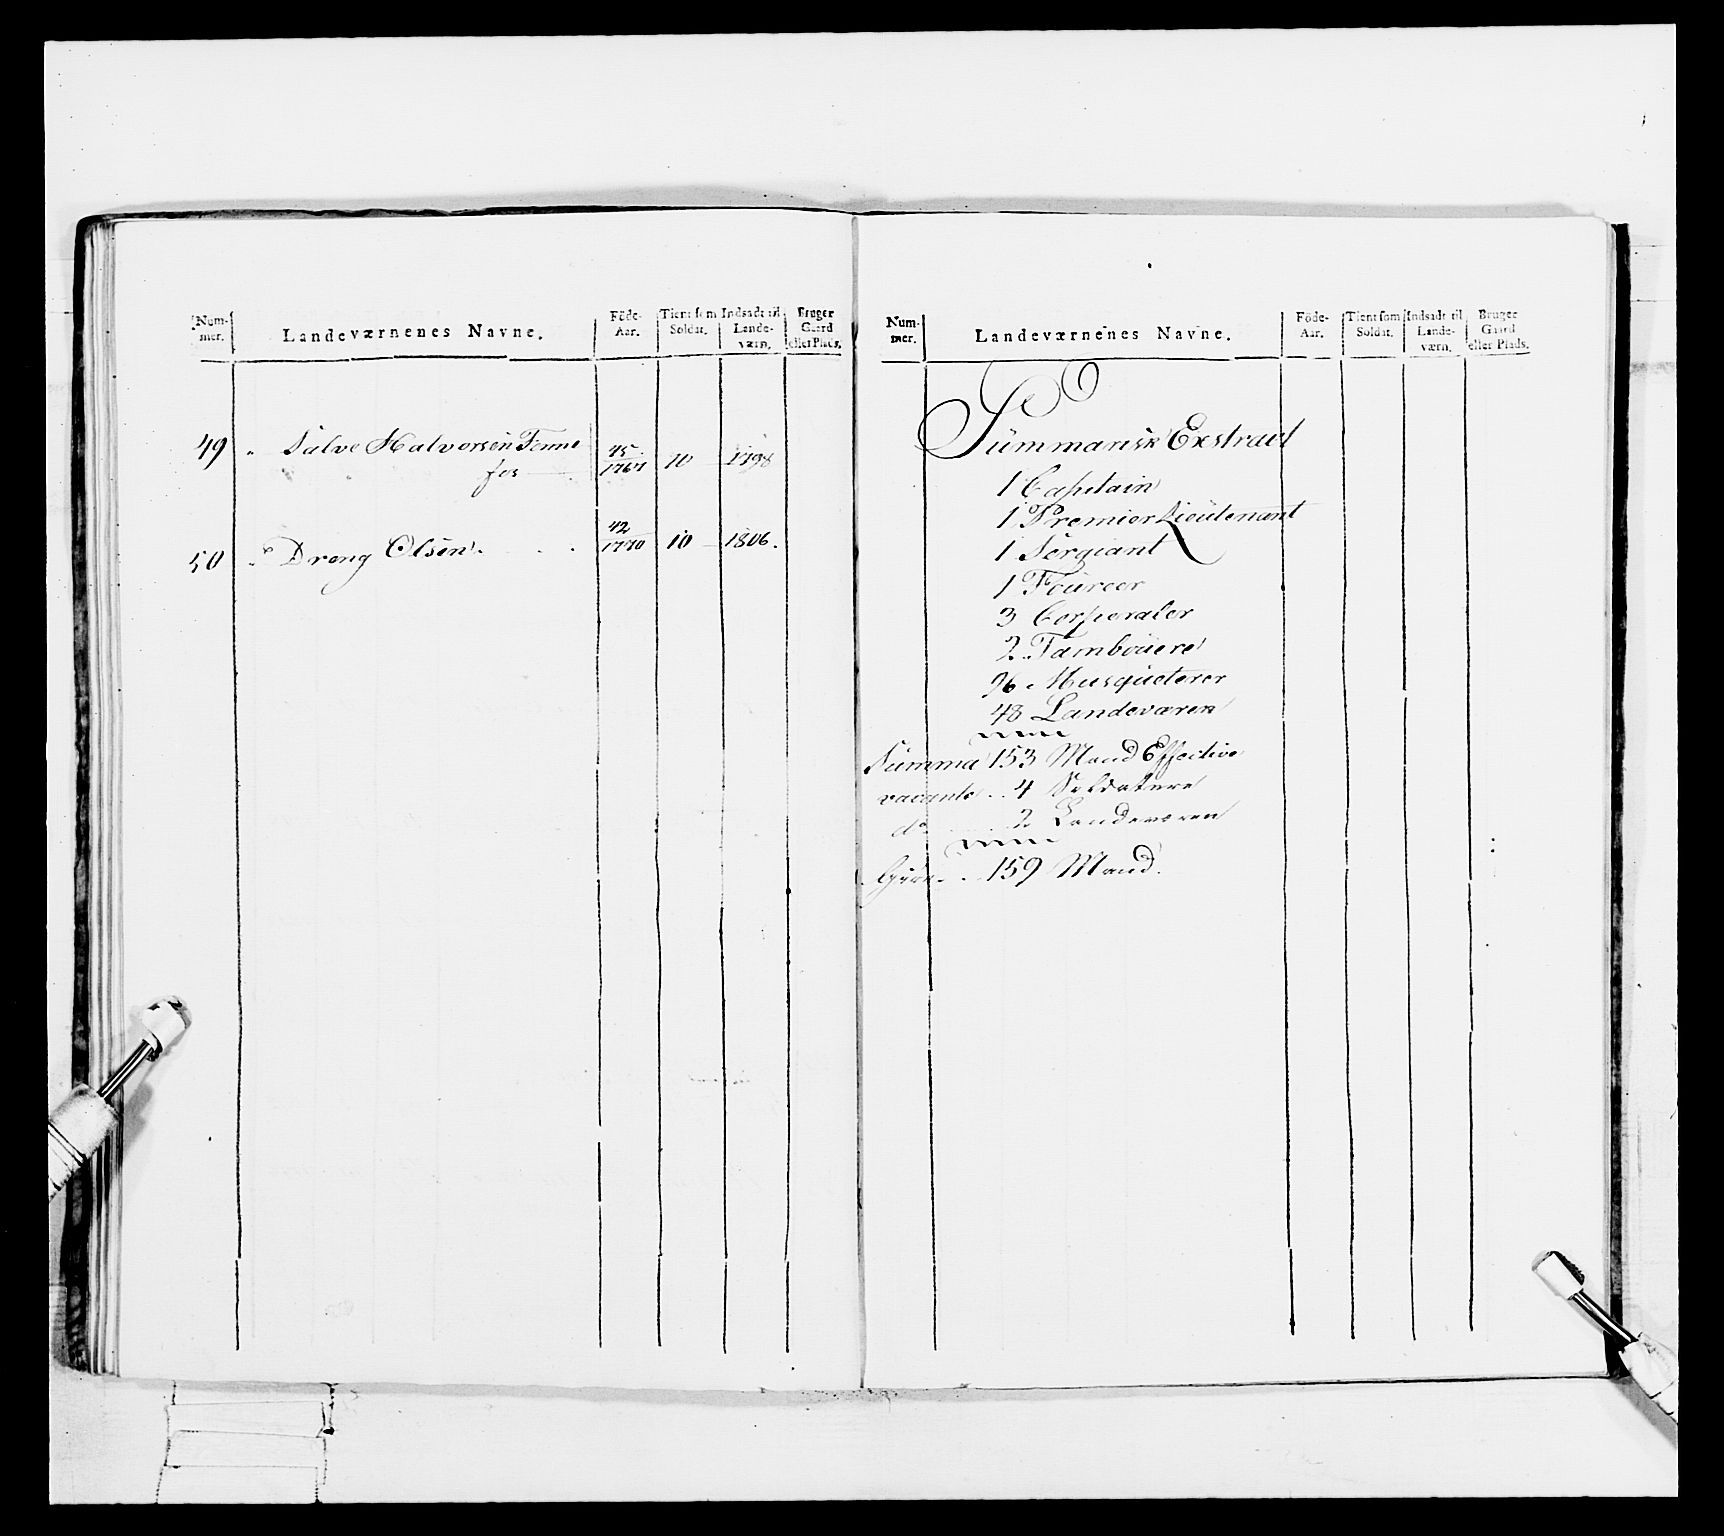 Num-
mer.
Landeværnenes Navne.
Föde-
Aar.
Tient som
Soldat.
Indsadt til
Lande-
værn.
Bruger
Gaard
eller Plads.
49 " Salve Halvorsen Fenne 45 1767 10 1798
fos
50 " Dreng Olsen. 42 1770 10 1806.
Num-
mer.
Landeværnenes Navne.
Föde-
Aar.
Tient som
Soldat.
Indsadt til
Lande-
værn.
Bruger
Gaard
eller Plads.
Summarisk Exstract
1 Capitain
1 Premier Lieutenant
1 Sergiant
1 Foureer
3 Corporaler
2 Tambouere
96 Musqueterer
48 Landeværen
Summa 153 Mand Effective
vacante .. 4 Soldatere
do 2 Landeværen
159 Mand.